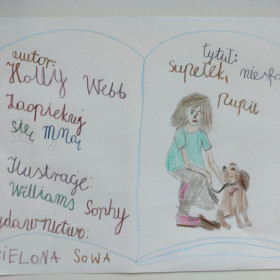 autor:
Holly Webb
Zaopiekuj
się mną
Ilustracje:
Williams Sophy
wydawnictwo:
ZIELONA SOWA
tytuł:
Supełek,
Pupil